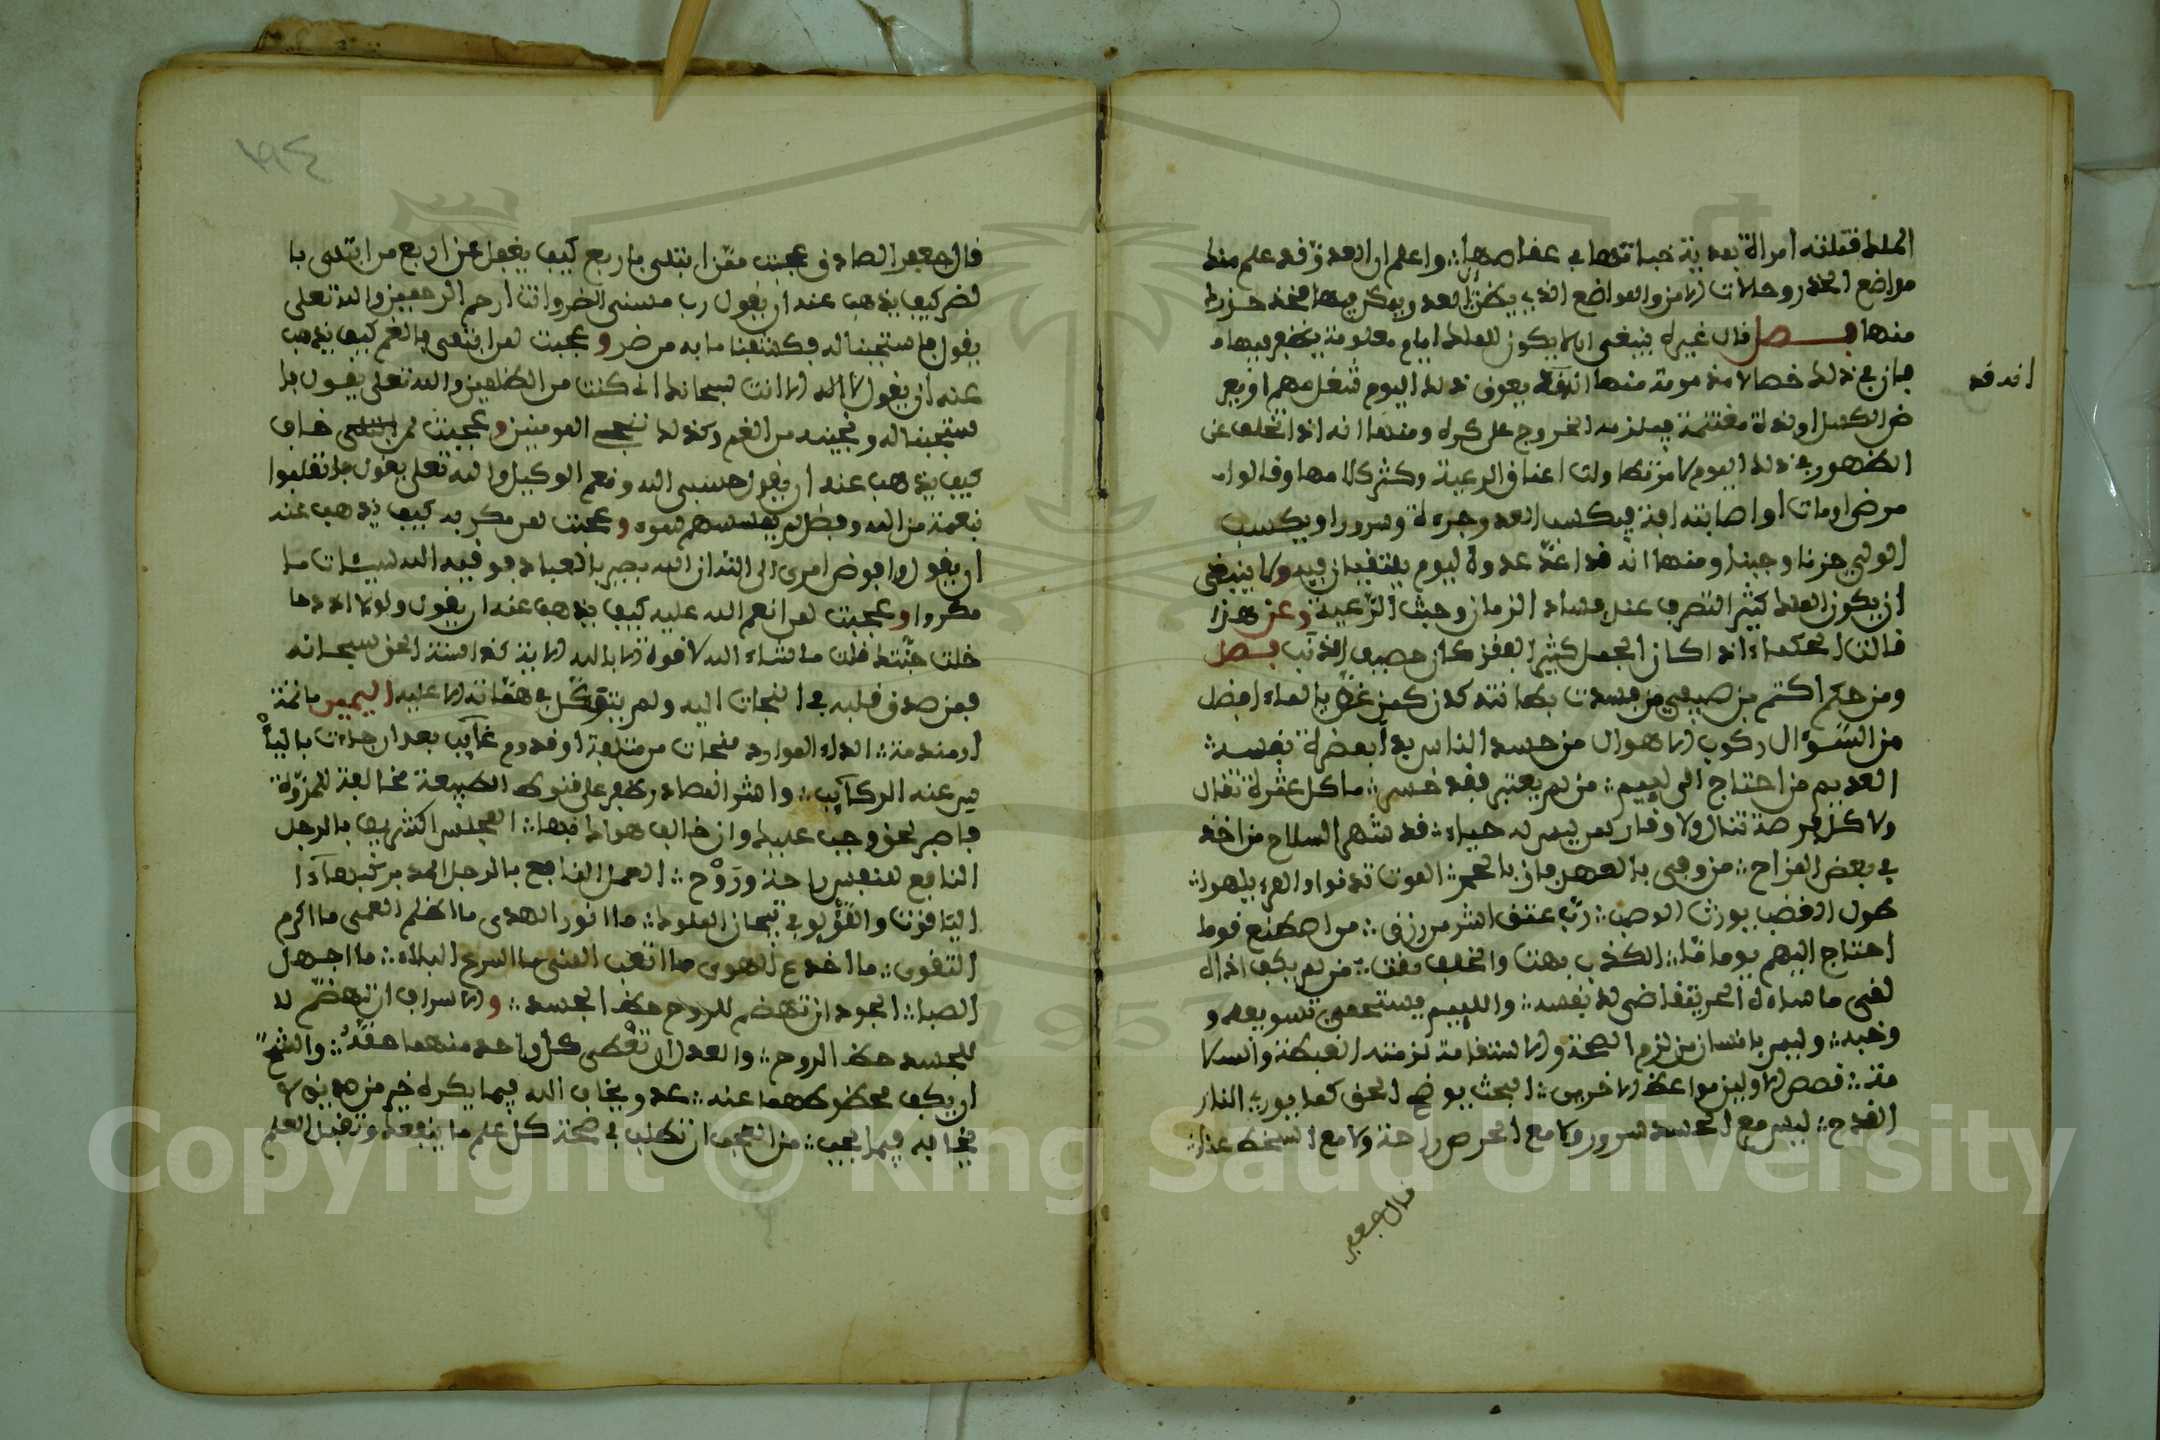 الملك فقتلته امراة بمدية خباتها في عقاصها واعلم ان العدو قد علم منك
مواضع الحذر وحالات الامن والمواضع التي يظن العدو يمكن فيها فخذ حذرك
منها فصل قال غيره ينبغي ان لا يكون للملك ايام معلومة يظهر فيها
فان في ذلك خصالا مذمومة منها انه قد يعوق ذلك اليوم شغل مهم او يعر
ض الكسل او لذة مغتنمة فيلزمه الخروج على كره ومنها انه اذا تخلف عن
الظهور في ذلك اليوم لامر ما ولت اعناق الرعية وكثر كلامها وقالوا
مرض او مات او اصابته افة فيكسب العدو جرءة وسرورا ويكسب
الولي حزنا وجبنا ومنها انه قد اعد عدوه ليوم يلتقيان فيه ولا ينبغي
ان يكون الملك كثير التصرف عند فساد الزمان وخبث الرعية وعن هذا
قالت الحكماء اذا كان المحل كثير القفز كان نصيب الذئب فصل
ومن حكم اكثم بن صيفي من فسدت بطانته كان كمن غص بالماء افضل
من السؤال ركوب الاهوال من حسد الناس بدا بمضرة نفسه
العديم من احتاج الى لييم من لم يعتبر فقد خسر ما كل عثرة تقال
ولا كل فرصة تنال ولا وقار لمن ليس له حياء قد شهر السلاح من اخذ
في بعض المزاح من وفى بالعهد فاز بالحمد الموت تدنوا والمرء يلهوا
طول الغضب يورث الوصب رب عتق اشر من رق من اصطنع قوما
احتاج اليهم يوما ما الكذب بهت والخلف مقت من لم يكف اذاه
لقي ما ساءه الحر يتقاضى لك نفسه واللييم يستحق تسويفه و
وليس بانسان من لزم الصحة والاستقامة لزمته الغبطة والسلا
مة قصص الاولين مواعظ الاخرين البحث يوضح الحق كما يوري النار
القدح ليس مع الحسد سرور ولا مع الحرص راحة ولا مع السخط غنا
قال جعفر
انه قد
قال جعفر الصادق عجبت ممن ابتلى باربع كيف يغفل عن اربع من ابتلى با
لضر كيف يذهب عنه ان يقول رب مسني الضر وانت ارحم الرحمين والله تعلى
يقول فاستجبنا له فكشفنا ما به من ضر وعجبت لمن ابتلى بالغم كيف يذهب
عنه ان يقول لا اله الا انت سبحانك اني كنت من الظلمين والله تعلى يقول فا
ستجبنا له ونجينه من الغم وكذلك ننجي المومنين وعجبت لمن خاف
كيف يذهب عنه ان يقول حسبي الله ونعم الوكيل والله تعلى يقول فانقلبوا
بنعمة من الله وفضل لم يمسسهم سوء وعجبت لمن مكر به كيف يذهب عنه
ان يقول وافوض امري الى الله ان الله بصير بالعباد فوقيه الله سيئات ما
مكروا وعجبت لمن انعم الله عليه كيف يذهب عنه ان يقول ولولا اذ د
خلت جنتك قلت ما شاء الله لا قوة الا بالله الاية كذا سنة الحق سبحانه
فيمن صدق قلبه في التجات اليه ولم يتوكل في مهماته الا عليه اليمين مانثة
او مندمة الذاء الموارد منجات من متلفة او قدوم غايب بعد ان جاءت بالياْ
س عنه الركايب واشر الفصاد رطفر على قنوط الطبيعة مخالفة للمروة
فاصبر لحق وجب عليك وان خالف هواك فيها المجلس اكثر يف بالرجل
النافع للنفس راحة وروح العمل النافع بالرجل
اليافوت واللؤلؤ في تيجان الملوك ما انور الهدى ما اظلم العمى ما اكرم
التقوى ما اخدع الهوى ما اتعب الغنى ما اسرع البلاء ما اجهل
الصبا الجود ان تهضم للروح حظ الجسد والاسراف ان تهضم لا
للجسد حظ الروح والعدل ان تعطى كل واحد منهما حقه والشح
ان يكف محظوظهما عنه عدو يخاف الله فيما يكره خير من صديق لا
يخافه فيما يحب من العجب ان تطلب في صحة كل علم ما ينفعك وترفض العلم